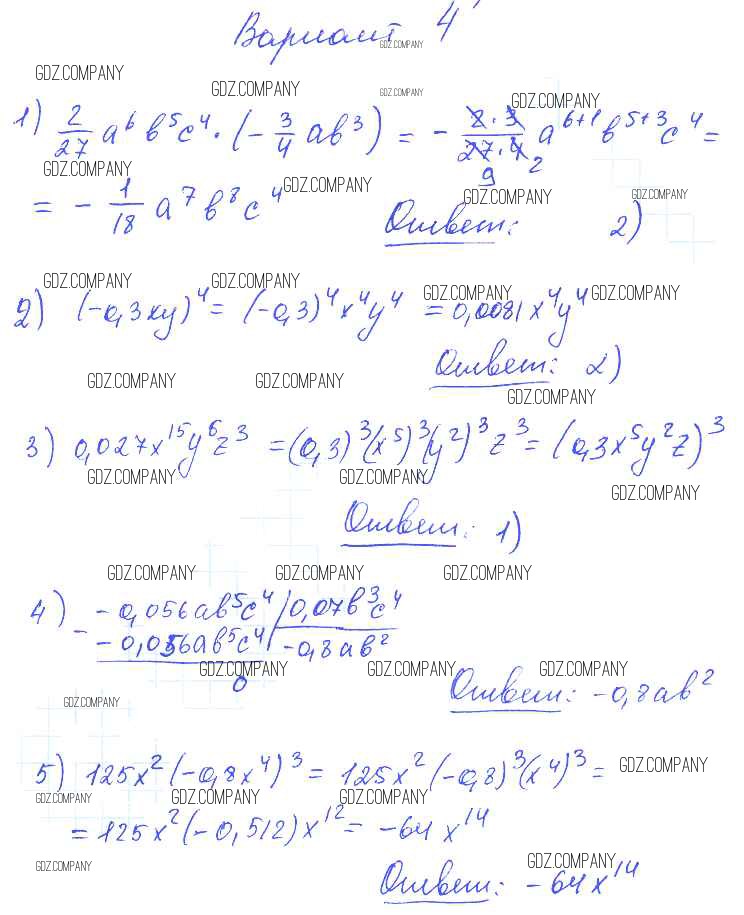 Вариант 4
GDZ.COMPANY
GDZ.COMPANY
GDZ.COMPANY GDZ.COMPANY
GDZ.COMPANY
1) 2/27 a⁶b⁵c⁴ · (- 3/4 ab³) = - 2·3/27·4 a⁶⁺¹b⁵⁺³c⁴ =
9 2
GDZ.COMPANY GDZ.COMPANY GDZ.COMPANY GDZ.COMPANY
= - 1/18 a⁷b⁸c⁴ Ответ: 2)
GDZ.COMPANY GDZ.COMPANY GDZ.COMPANY GDZ.COMPANY
2) (-0,3xy)⁴ = (-0,3)⁴x⁴y⁴ = 0,0081x⁴y⁴
Ответ: 2)
GDZ.COMPANY GDZ.COMPANY GDZ.COMPANY
3) 0,027x¹⁵y⁶z³ = (0,3)³(x⁵)³(y²)³z³ = (0,3x⁵y²z)³
GDZ.COMPANY GDZ.COMPANY GDZ.COMPANY
Ответ: 1)
GDZ.COMPANY GDZ.COMPANY GDZ.COMPANY
4) - -0,056ab⁵c⁴ | 0,07b³c⁴
-0,056ab⁵c⁴ | -0,8ab²
0
GDZ.COMPANY GDZ.COMPANY GDZ.COMPANY
Ответ: -0,8ab²
GDZ.COMPANY
5) 125x²(-0,8x⁴)³ = 125x²(-0,8)³(x⁴)³ =
GDZ.COMPANY
GDZ.COMPANY GDZ.COMPANY GDZ.COMPANY
= 125x²(-0,512)x¹² = -64x¹⁴
GDZ.COMPANY GDZ.COMPANY
Ответ: -64x¹⁴